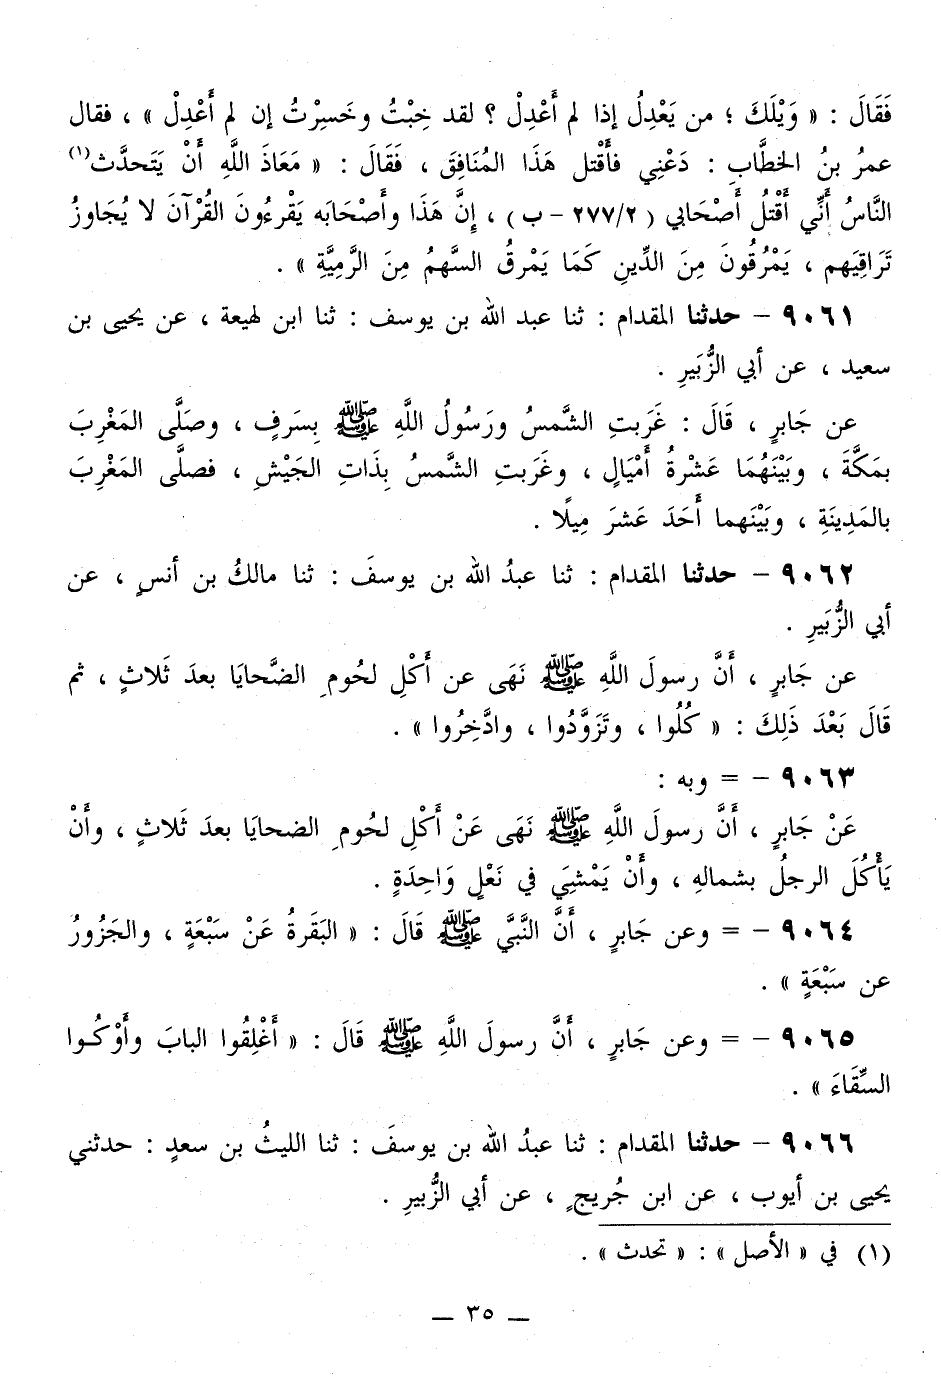 فَقَالَ : « وَيْلَكَ ؛ من يَعْدِلُ إذا لم أَعْدِلْ ؟ لقد خِبْتُ وخَسِرْتُ إن لم أَعْدِلْ » ، فقال
عمرُ بنُ الخطَّابِ : دَعْنِي فأَقْتل هَذَا المُنَافِقَ ، فَقَالَ : « مَعَاذَ اللَّهِ أَنْ يَتَحدَّث(١)
النَّاسُ أَنِّي أَقْتلُ أَصْحَابي ( ٢٧٧/٢ - ب ) ، إنَّ هَذَا وأَصْحَابه يَقْرءُونَ القُرْآنَ لا يُجَاوزُ
تَرَاقِيَهم ، يَمْرُقُونَ مِنَ الدِّينِ كَمَا يَمْرقُ السَّهمُ مِنَ الرَّمِيَّةِ » .
٩٠٦١ - حدثنا المقدام : ثنا عبد الله بن يوسف : ثنا ابن لهيعة ، عن يحيى بن
سعيد ، عن أبي الزُّبَيرِ .
عن جَابرٍ ، قَالَ : غَرَبتِ الشَّمسُ ورَسُولُ اللَّهِ ﷺ بِسَرفٍ ، وصَلَّى المَغْربَ
بمَكَّةَ ، وبَيْنَهُمَا عَشْرةُ أَمْيَالٍ ، وغَرَبتِ الشَّمسُ بِذَاتِ الجَيْشِ ، فصلَّى المَغْربَ
بالمَدِينَةِ ، وبَيْنَهما أَحَدَ عَشرَ مِيلًا .
٩٠٦٢ - حدثنا المقدام : ثنا عبدُ الله بن يوسفَ : ثنا مالكُ بن أنسٍ ، عن
أبي الزُّبَيرِ .
عن جَابرٍ ، أَنَّ رسولَ اللَّهِ ﷺ نَهَى عن أَكْلِ لحُومِ الضَّحايَا بعدَ ثَلاثٍ ، ثم
قَالَ بَعْدَ ذَلِكَ : « كُلُوا ، وتَزَوَّدُوا ، وادَّخِرُوا » .
٩٠٦٣ - = وبه :
عَنْ جَابرٍ ، أَنَّ رسولَ اللَّهِ ﷺ نَهَى عَنْ أَكْلِ لحُومِ الضحايَا بعدَ ثَلاثٍ ، وأَنْ
يَأْكُلَ الرجلُ بشمالهِ ، وأَنْ يَمْشِيَ في نَعْلٍ وَاحِدَةٍ .
٩٠٦٤ - = وعن جَابرٍ ، أَنَّ النَّبيَّ ﷺ قَالَ : « البَقَرةُ عَنْ سَبْعَةٍ ، والجَزُورُ
عن سَبْعَةٍ » .
٩٠٦٥ - = وعن جَابرٍ ، أَنَّ رسولَ اللَّهِ ﷺ قَالَ : « أَغْلِقُوا البابَ وأَوْكُـوا
السِّقَاءَ » .
٩٠٦٦ - حدثنا المقدام : ثنا عبدُ الله بن يوسفَ : ثنا الليثُ بن سعدٍ : حدثني
يحيى بن أيوب ، عن ابن جُريجٍ ، عن أبي الزُّبيرِ .
(١) في « الأصل » : « تحدث » .
— ٣٥ —